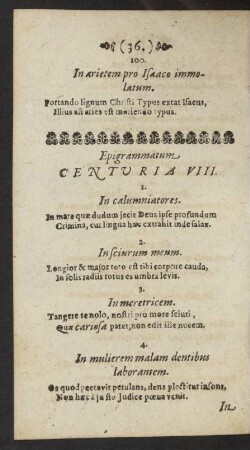 (36.)
100.
In arietem pro Isaaco immo-
latum.
Portando lignum Christi Typus extat Isacus,
Illius ast aries est moriendo typus.
Epigrammatum
CENTURIA VIII.
1.
In calumniatores.
In mare quæ dudum jecit Deus ipse profundum
Crimina, cur lingua hæc extrahit inde salax.
2.
In sciurum meum.
Longior & major toto est tibi corpore cauda,
In solis radiis totus es umbra levis.
3.
In meretricem.
Tangere te nolo, nostri pro more sciuri,
Quæ cariosa patet, non edit ille nucem.
4.
In mulierem malam dentibus
laborantem.
Os quod peccavit petulans, dens plectitur insons,
Non hæc à justo Judice pœna venit.
In